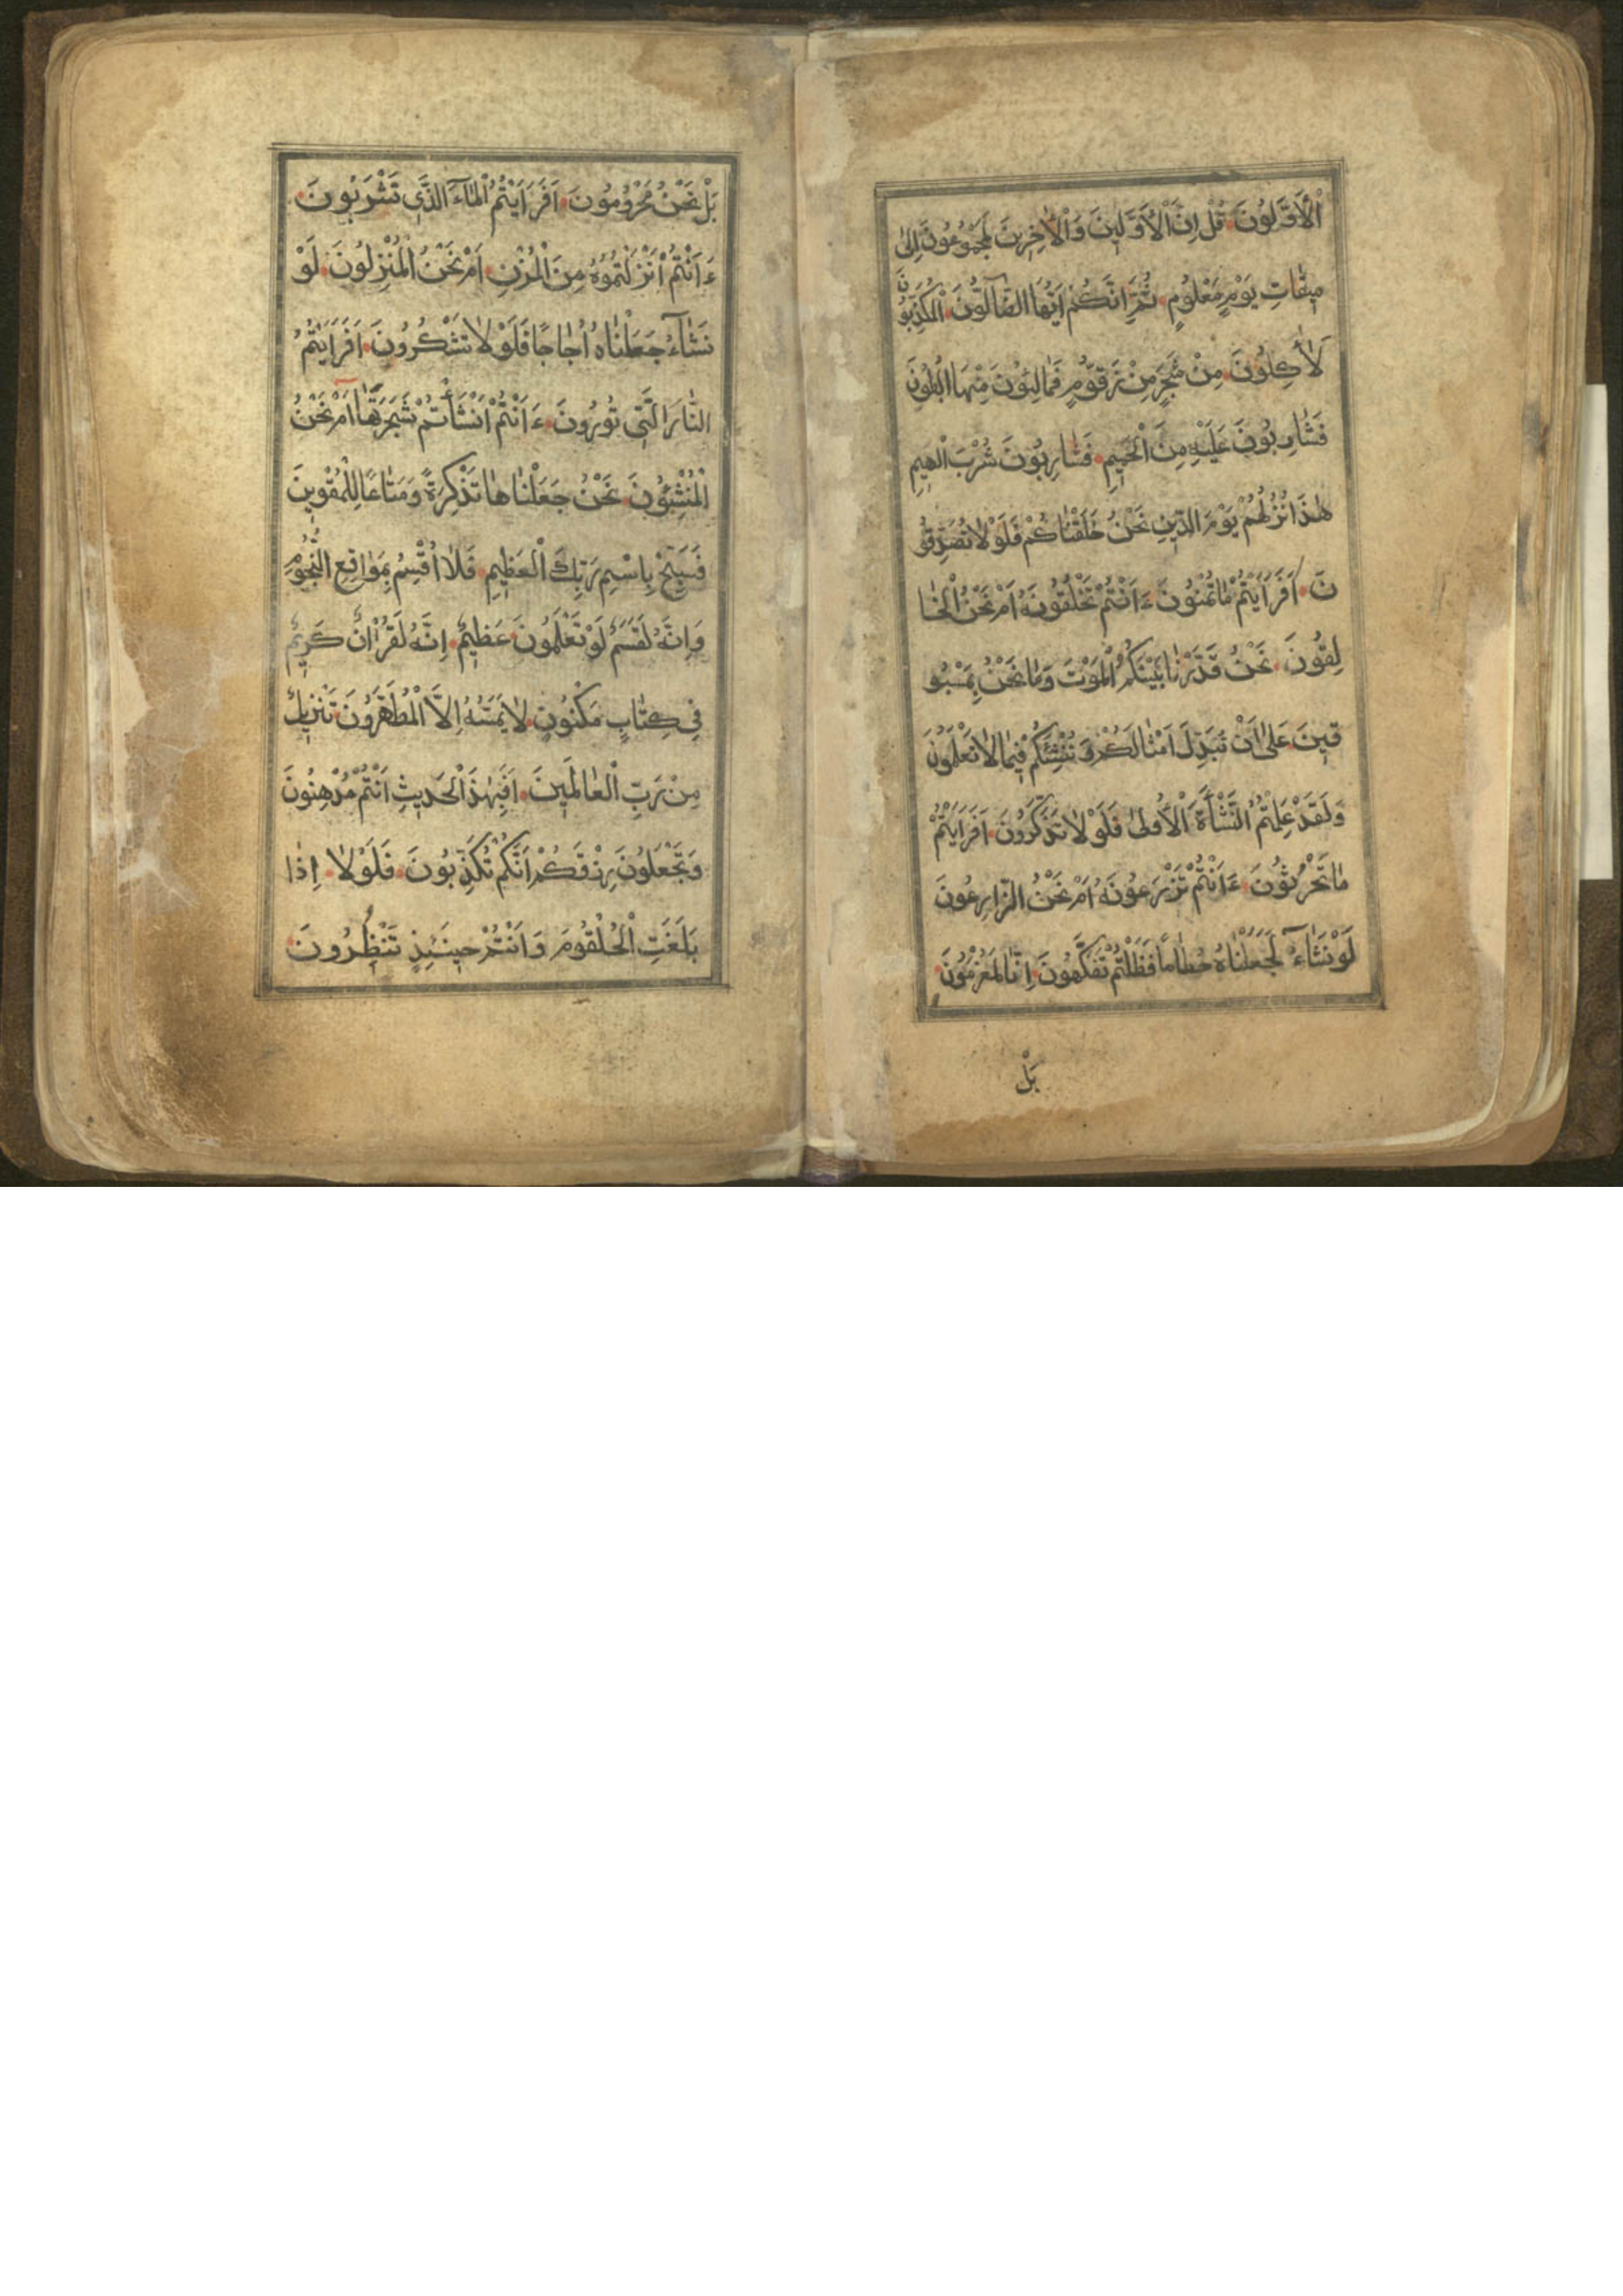 الْاَوَّلُونَ قُلْ اِنَّ الْاَوَّلِينَ وَالْاٰخِرِينَ لَمَجْمُوعُونَ اِلىٰ
مِيقَاتِ يَوْمٍ مَعْلُومٍ ثُمَّ اِنَّكُمْ اَيُّهَا الضَّآلُّونَ الْمُكَذِّبُونَ
لَاٰكِلُونَ مِنْ شَجَرٍ مِنْ زَقُّومٍ فَمَالِئُونَ مِنْهَا الْبُطُونَ
فَشَارِبُونَ عَلَيْهِ مِنَ الْحَمِيمِ فَشَارِبُونَ شُرْبَ الْهِيمِ
هٰذَا نُزُلُهُمْ يَوْمَ الدِّينِ نَحْنُ خَلَقْنَاكُمْ فَلَوْلَا تُصَدِّقُو
نَ اَفَرَاَيْتُمْ مَاتُمْنُونَ ءَاَنْتُمْ تَخْلُقُونَهُ اَمْ نَحْنُ الْخَا
لِقُونَ نَحْنُ قَدَّرْنَا بَيْنَكُمُ الْمَوْتَ وَمَا نَحْنُ بِمَسْبُو
قِينَ عَلىٰ اَنْ نُبَدِّلَ اَمْثَالَكُمْ وَ نُنْشِئَكُمْ فِيمَا لَا تَعْلَمُونَ
وَلَقَدْ عَلِمْتُمُ النَّشْأَةَ الْاُولىٰ فَلَوْلَا تَذَكَّرُونَ اَفَرَاَيْتُمْ
مَا تَحْرُثُونَ ءَاَنْتُمْ تَزْرَعُونَهُ اَمْ نَحْنُ الزَّارِعُونَ
لَوْ نَشَآءُ لَجَعَلْنَاهُ حُطَاماً فَظَلْتُمْ تَفَكَّهُونَ اِنَّا لَمُغْرَمُونَ
بَلْ
بَلْ نَحْنُ مَحْرُومُونَ اَفَرَاَيْتُمُ الْمَآءَ الَّذِى تَشْرَبُونَ
ءَاَنْتُمْ اَنْزَلْتُمُوهُ مِنَ الْمُزْنِ اَمْ نَحْنُ الْمُنْزِلُونَ لَوْ
نَشَآءُ جَعَلْنَاهُ اُجَاجًا فَلَوْلَا تَشْكُرُونَ اَفَرَاَيْتُمُ
النَّارَ الَّتِى تُورُونَ ءَاَنْتُمْ اَنْشَأْتُمْ شَجَرَتَهَا اَمْ نَحْنُ
الْمُنْشِئُونَ نَحْنُ جَعَلْنَاهَا تَذْكِرَةً وَمَتَاعًا لِلْمُقْوِينَ
فَسَبِّحْ بِاسْمِ رَبِّكَ الْعَظِيمِ فَلَا اُقْسِمُ بِمَوَاقِعِ النُّجُومِ
وَاِنَّهُ لَقَسَمٌ لَوْ تَعْلَمُونَ عَظِيمٌ اِنَّهُ لَقُرْاٰنٌ كَرِيمٌ
فِى كِتَابٍ مَكْنُونٍ لَا يَمَسُّهُ اِلَّا الْمُطَهَّرُونَ تَنْزِيلٌ
مِنْ رَبِّ الْعَالَمِينَ اَفَبِهٰذَا الْحَدِيثِ اَنْتُمْ مُدْهِنُونَ
وَتَجْعَلُونَ رِزْقَكُمْ اَنَّكُمْ تُكَذِّبُونَ فَلَوْلَا اِذَا
بَلَغَتِ الْحُلْقُومَ وَاَنْتُمْ حِينَئِذٍ تَنْظُرُونَ